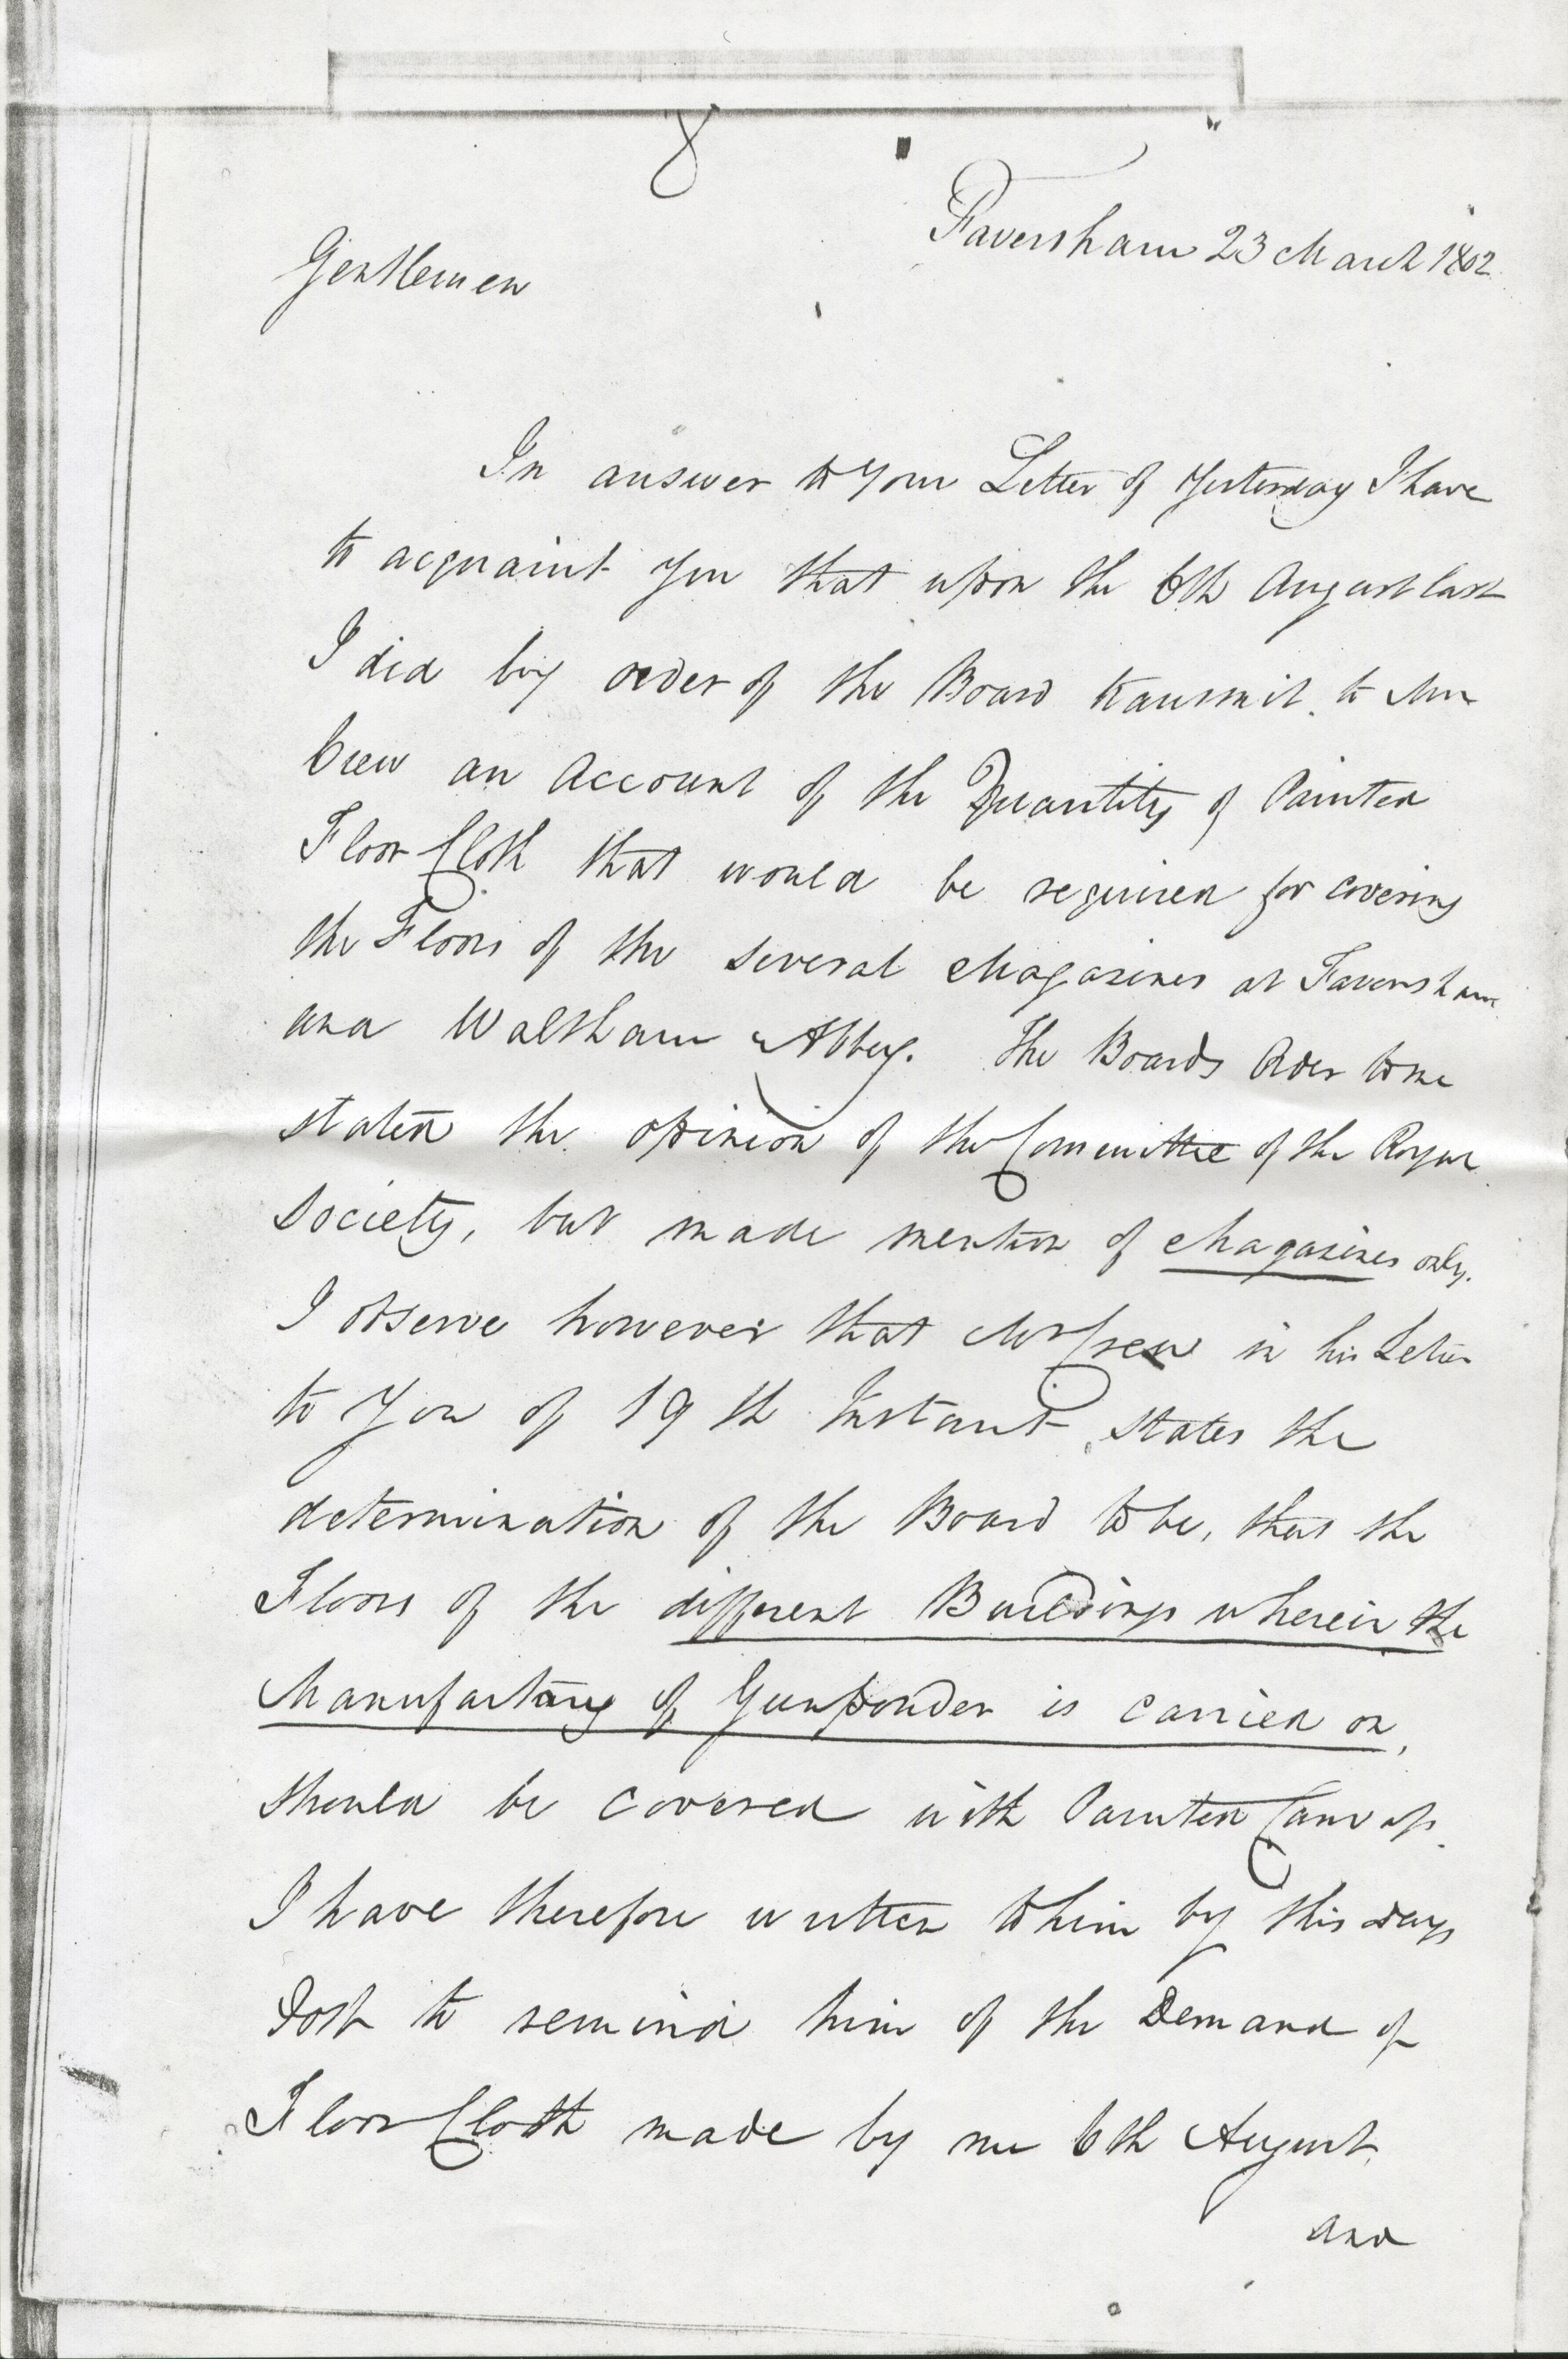 8
Faversham 23 March 1802
Gentlemen
In answer to your Letter of Yesterday I have
to acquaint you that upon the 6th August last
I did by order of the Board transmit to Mr
Crew an Account of the Quantity of Painted
Floor Cloth that would be required for covering
the Floors of the several Magazines at Faversham
and Waltham Abbey. The Boards Order to me
stated the opinion of the Committee of the Royal
Society, but made mention of Magazines only.
I observe however that Mr Crew in his Letter
to You of 19th Instant, states the
determination of the Board to be, that the
Floors of the different Buildings wherein the
Manufactory of Gunpowder is carried on,
should be covered with Painted Canvas.
I have therefore written to him by this days
Post to remind him of the Demand of
Floor Cloth made by me 6th August,
and